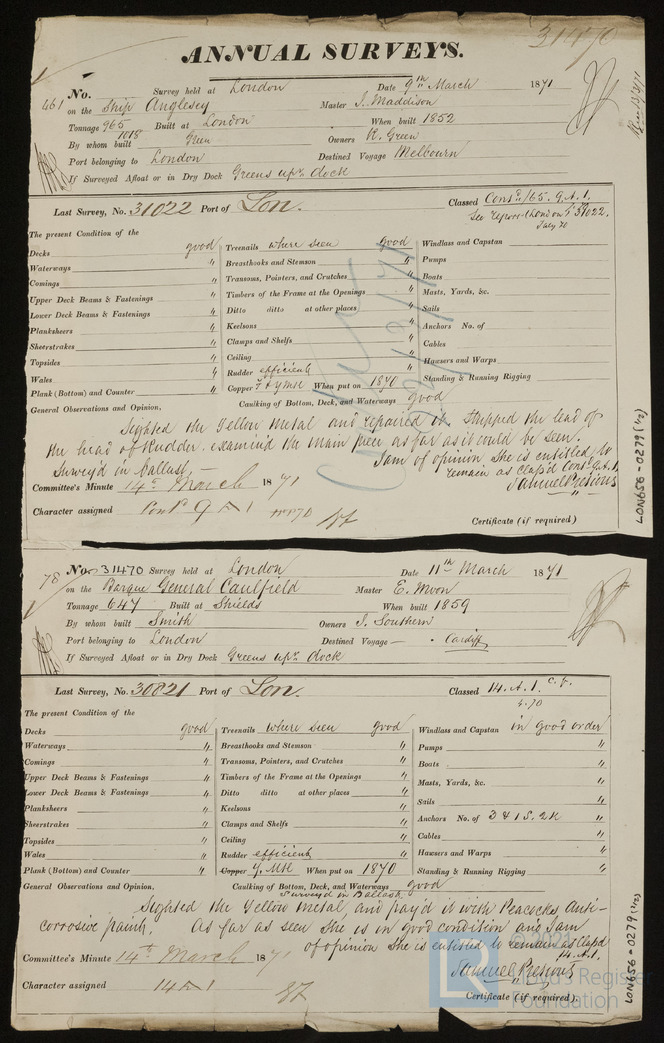 31470
ANNUAL SURVEYS.
No. 461 Survey held at London Date 9th March 1871
on the Ship Anglesey Master J. Maddison
Tonnage 965 1018 Built at London When built 1852
By whom built Green Owners R. Green
Port belonging to London Destined Voyage Melbourn
If Surveyed Afloat or in Dry Dock Greens upr. dock
Last Survey, No. 31022 Port of Lon. Classed Contd/65. 9. A. 1.
See report London 31022.
July 70
The present Condition of the
Decks good Treenails where seen good Windlass and Capstan
Waterways " Breasthooks and Stemson " Pumps
Comings " Transoms, Pointers, and Crutches " Boats
Upper Deck Beams & Fastenings " Timbers of the Frame at the Openings " Masts, Yards, &c.
Lower Deck Beams & Fastenings " Ditto ditto at other places " Sails
Planksheers " Keelsons " Anchors No. of
Sheerstrakes " Clamps and Shelfs " Cables
Topsides " Ceiling " Hawsers and Warps
Wales " Rudder efficient Standing & Running Rigging
Plank (Bottom) and Counter " Copper When put on 1870
General Observations and Opinion, Caulking of Bottom, Deck, and Waterways good
Sighted the Yellow Metal and repaired it. Stripped the lead of
the head of Rudder. examined the main piece as far as it could be seen.
Survey'd in ballast. I am of opinion she is entitled to
remain as class'd Contd 9. A. 1.
Samuel Presious
Committee's Minute 14th March 1871
Character assigned Contd 9 A 1
Certificate (if required)
LON656-0279 (1/2)
78
No. 31470 Survey held at London Date 11th March 1871
on the Barque General Caulfield Master E. Moon
Tonnage 647 Built at Shields When built 1859
By whom built Smith Owners J. Southern
Port belonging to London Destined Voyage - Cardiff
If Surveyed Afloat or in Dry Dock Greens upr. dock
Last Survey, No. 30821 Port of Lon. Classed 14. A. 1. c.f.
4.70
The present Condition of the
Decks good Treenails where seen good Windlass and Capstan in good order
Waterways " Breasthooks and Stemson " Pumps "
Comings " Transoms, Pointers, and Crutches " Boats "
Upper Deck Beams & Fastenings " Timbers of the Frame at the Openings " Masts, Yards, &c. "
Lower Deck Beams & Fastenings " Ditto ditto at other places " Sails "
Planksheers " Keelsons " Anchors No. of 3 & 1 S. 2 K "
Sheerstrakes " Clamps and Shelfs " Cables "
Topsides " Ceiling " Hawsers and Warps "
Wales " Rudder efficient Standing & Running Rigging "
Plank (Bottom) and Counter " Copper Y. Mtl When put on 1870
General Observations and Opinion, Caulking of Bottom, Deck, and Waterways good
Survey'd in Ballast
Sighted the Yellow Metal, and pay'd it with Peacocks Anti-
corrosive paint. As far as seen she is in good condition and I am
of opinion she is entitled to remain as class'd
14. A. 1.
Samuel Presious
Committee's Minute 14th March 1871
Character assigned 14 A 1
Certificate (if required)
LON656-0279 (1/2)
© 2021
LR
Lloyd's Register
Foundation